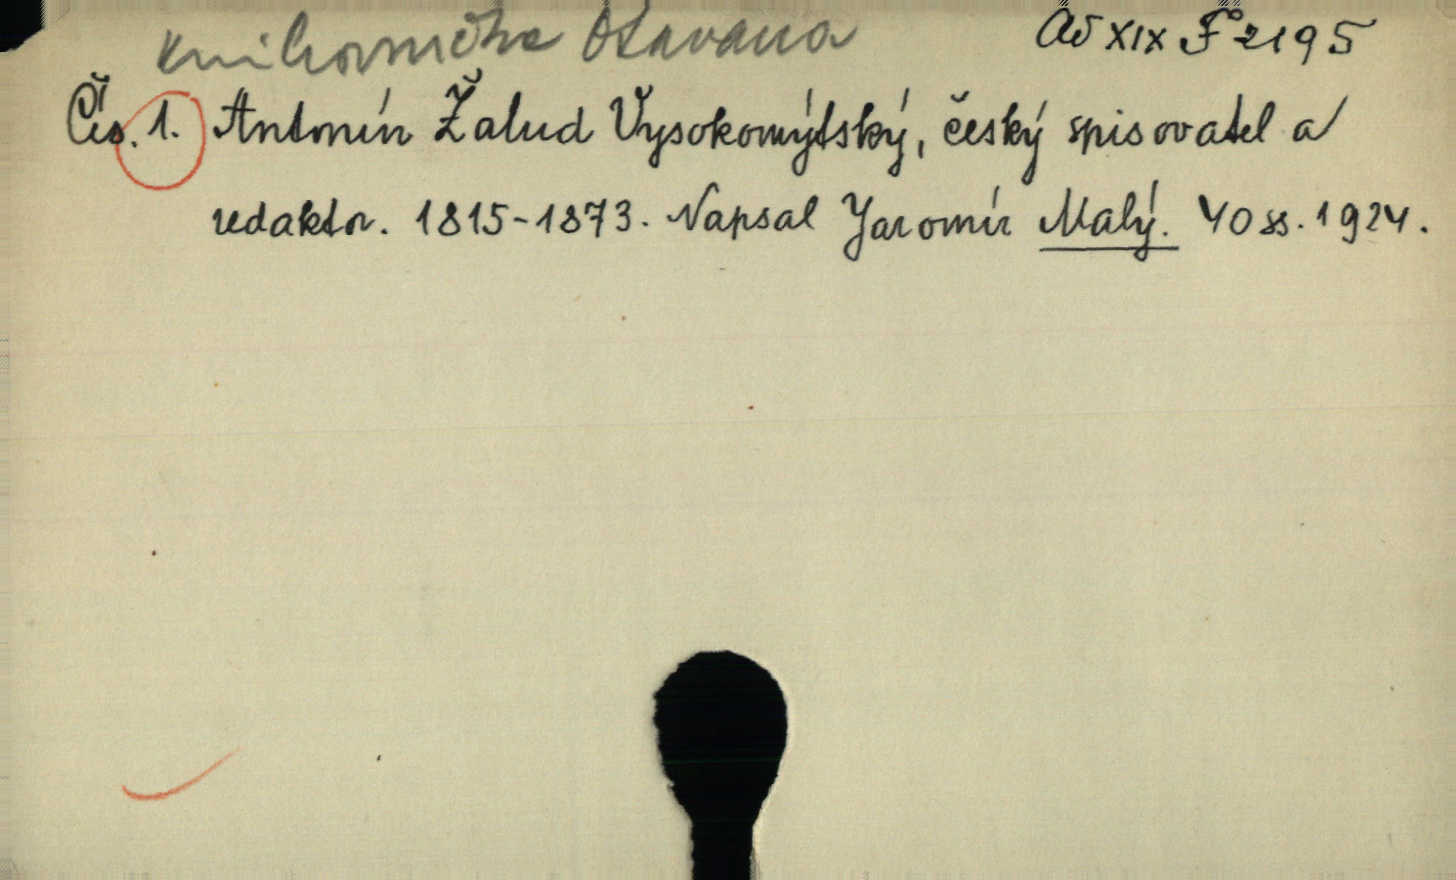 Knihovnička Otavana
Ad XIX F 2195
Čís. 1. Antonín Žalud Vysokomýtský, český spisovatel a
redaktor. 1815-1873. Napsal Jaromír Malý. 40 ss. 1924.